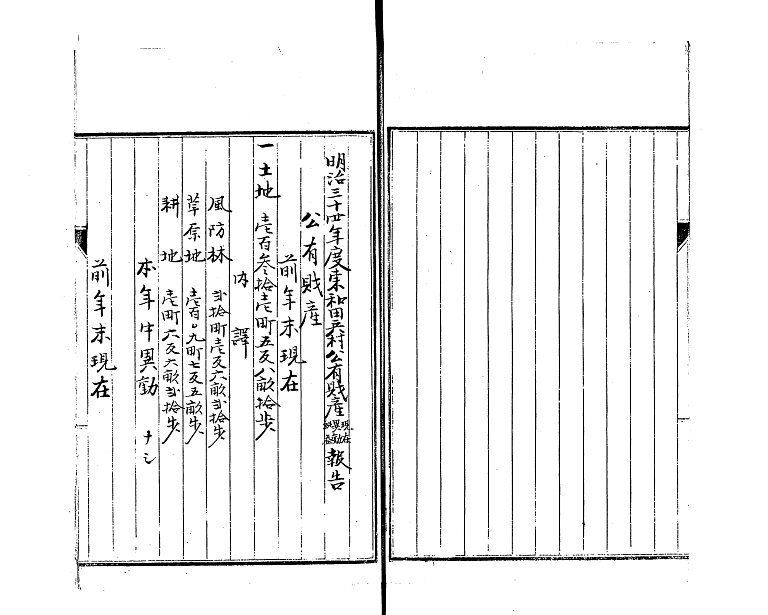 明治三十四年度東和田村公有財産現在異動報告
公有財産
前年末現在
一土地 壱百参拾壱町五反八畝拾歩
内譯
風防林 弐拾町壱反六畝弐拾歩
草原地 壱百〇九町七反五畝歩
耕地 壱町六反六畝弐拾歩
本年中異動 ナシ
前年末現在